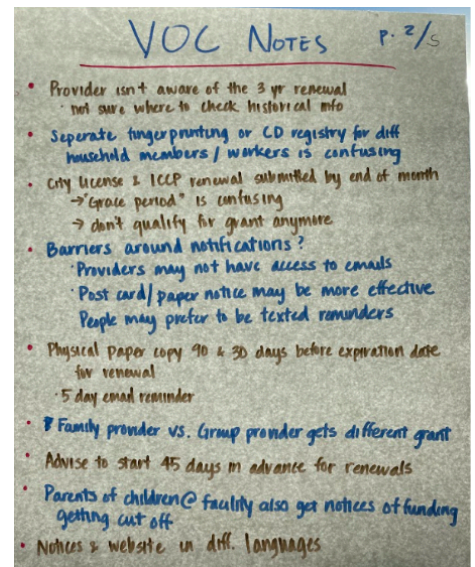 VOC NOTES p. 2/5
• Provider isn't aware of the 3 yr renewal
· not sure where to check historical info
• Seperate fingerprinting or CD registry for diff
household members / workers is confusing
• City License & ICCP renewal submitted by end of month
→ "Grace period" is confusing
→ don't qualify for grant anymore
• Barriers around notifications?
· Providers may not have access to emails
· Post card / paper notice may be more effective
People may prefer to be texted reminders
• Physical paper copy 90 & 30 days before expiration date
for renewal
· 5 day email reminder
• Family provider vs. Group provider gets different grant
• Advise to start 45 days in advance for renewals
• Parents of children @ facility also get notices of funding
getting cut off
• Notices & website in diff. languages